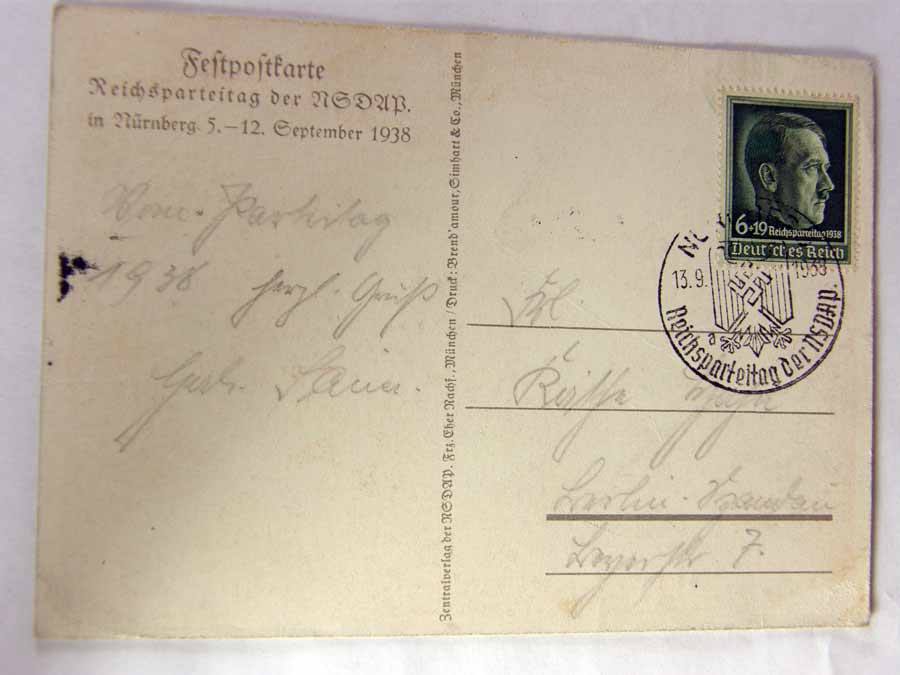 Festpostkarte
Reichsparteitag der NSDAP.
in Nürnberg 5.–12. September 1938
Vom Parteitag
1938 herzl. Gruß
Zentralverlag der NSDAP. Frz. Eher Nachf., München / Druck: Brend'amour, Simhart & Co., München
6+19 Reichsparteitag 1938
Deutsches Reich
13.9. 1938
a
Reichsparteitag der NSDAP.
Frl.
Käthe
Berlin-Spandau
7.